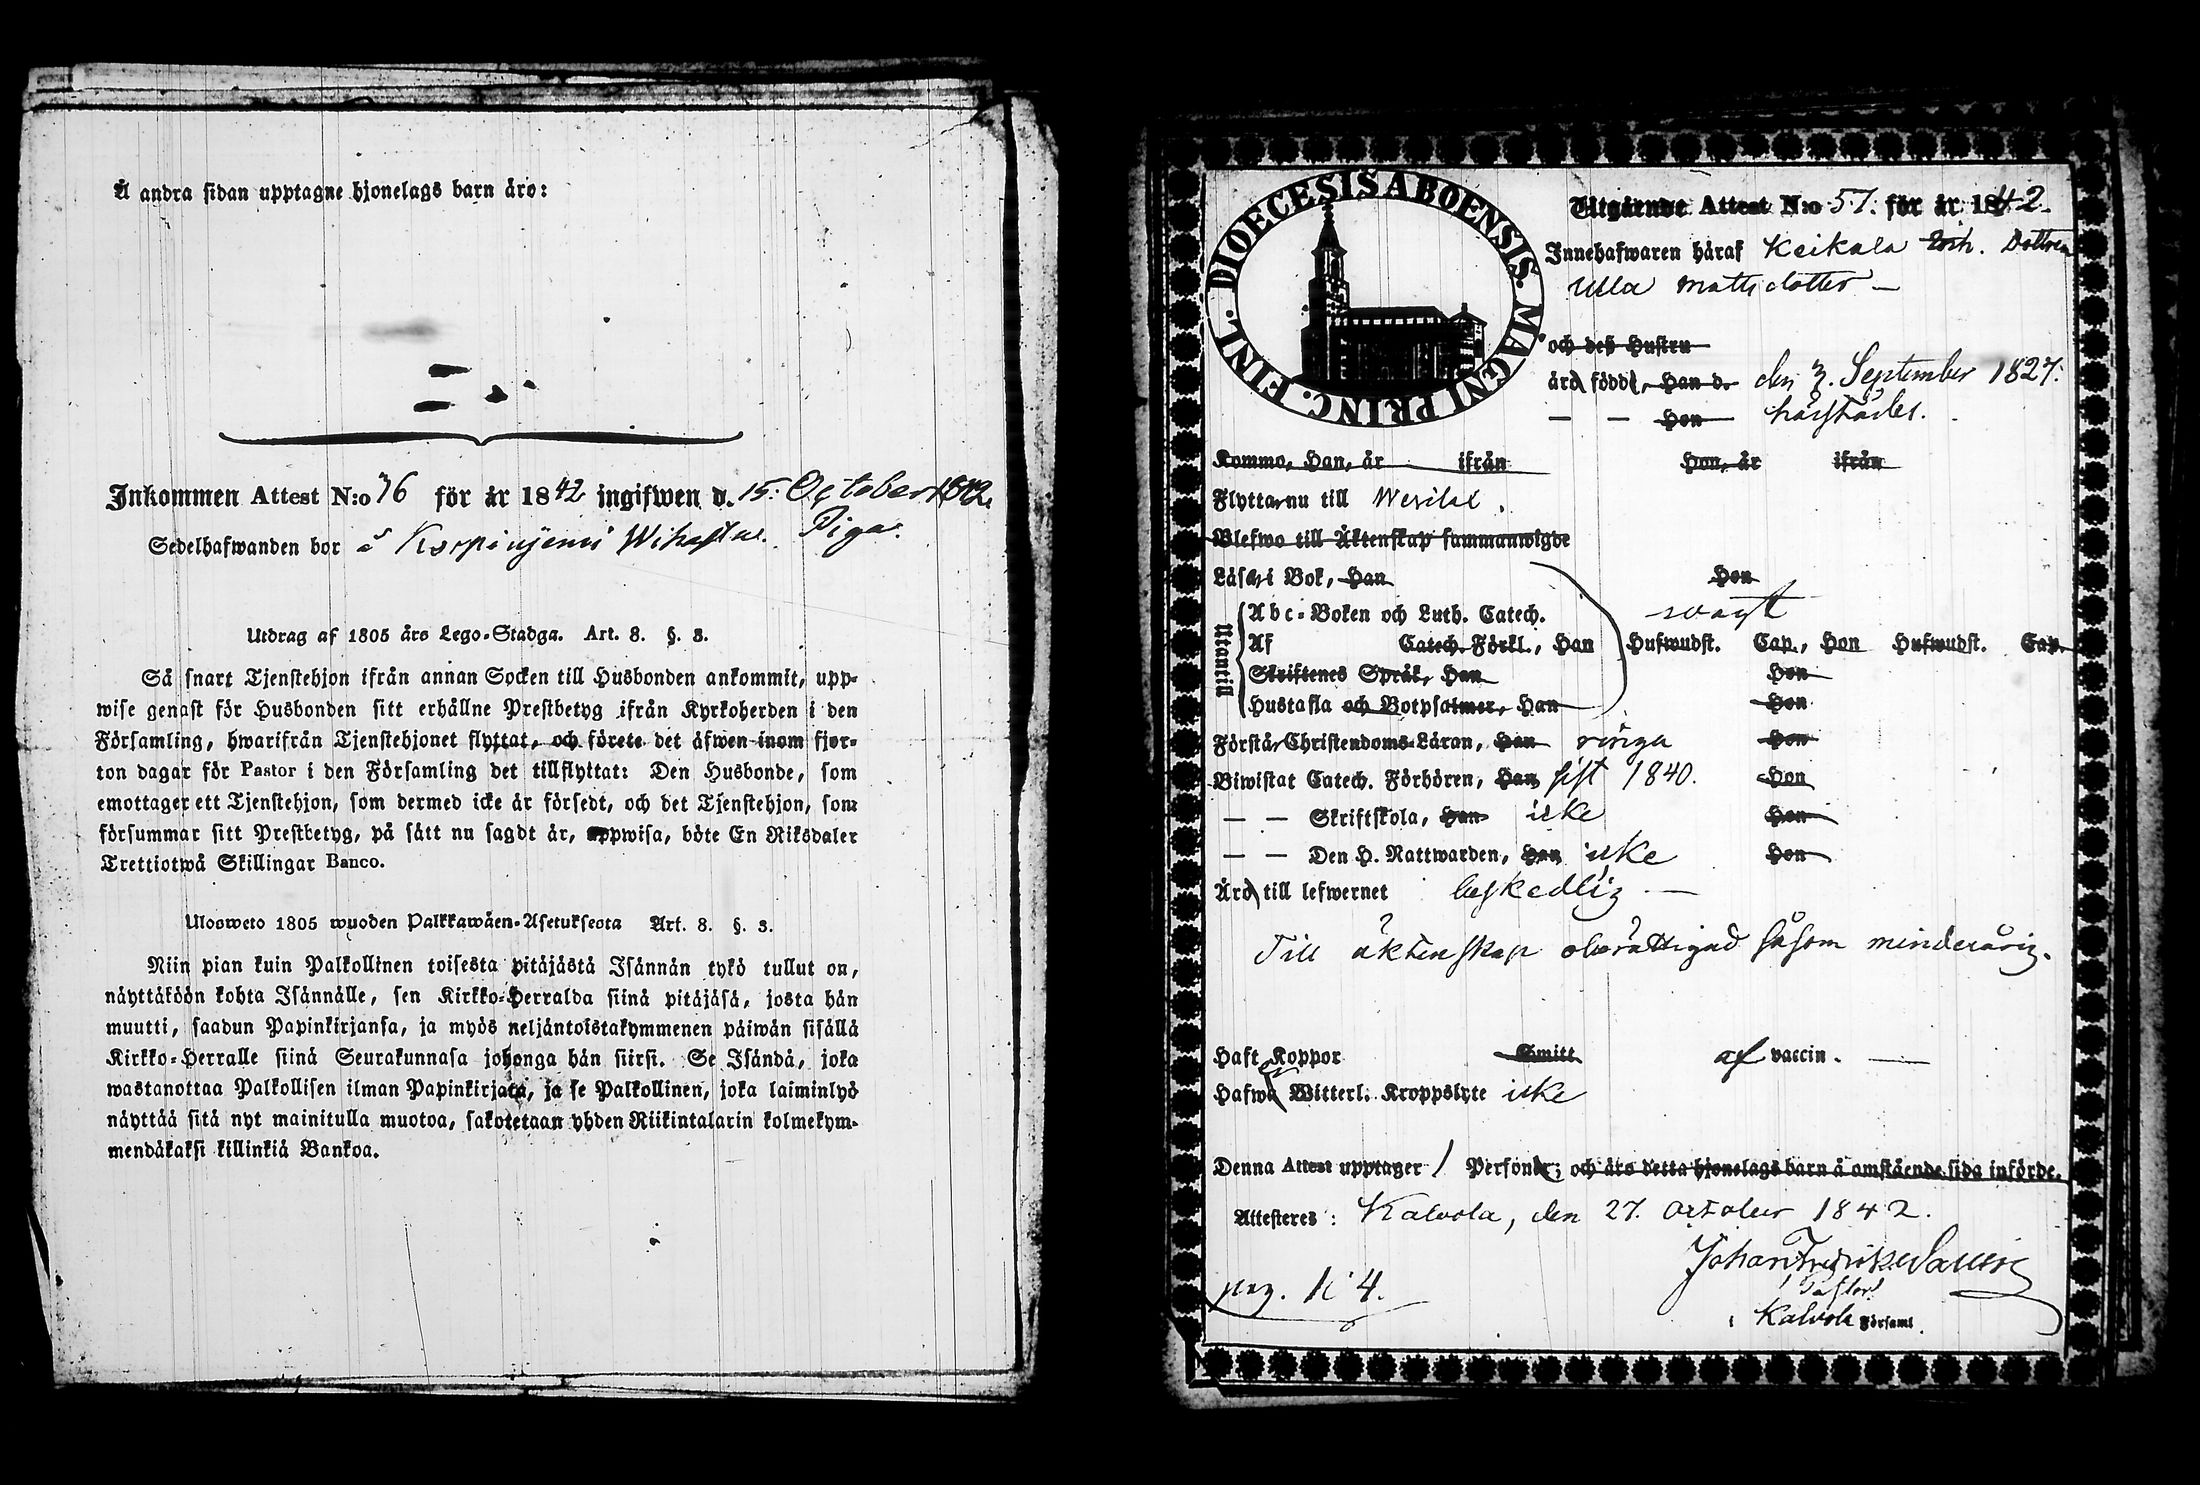 Å andra sidan upptagne hjonelags barn äro:
Inkommen Attest N:o 76 för år 1842 ingifwen d. 15. October 1842.
Sedelhafwanden bor å Korpinjemi Wihastua. Piga.
Utdrag af 1805 års Lego-Stadga. Art. 8. §. 3.
Så snart Tjenstehjon ifrån annan Socken till Husbonden ankommit, upp-
wise genast för Husbonden sitt erhållne Prestbetyg ifrån Kyrkoherden i den
Församling, hwarifrån Tjenstehjonet flyttat, och förete det äfwen inom fjor-
ton dagar för Pastor i den Församling det tillflyttat: Den Husbonde, som
emottager ett Tjenstehjon, som dermed icke är försedt, och det Tjenstehjon, som
försummar sitt Prestbetyg, på sätt nu sagdt är, uppwisa, böte En Riksdaler
Trettiotwå Skillingar Banco.
Ulosweto 1805 wuoden Palkkawäen-Asetuksesta Art. 8. §. 3.
Niin pian kuin Palkollinen toisesta pitäjästä Isännän tykö tullut on,
näyttäköön kohta Isännälle, sen Kirkko-Herralda siinä pitäjäsä, josta hän
muutti, saadun Papinkirjansa, ja myös neljäntoistakymmenen päiwän sisällä
Kirkko-Herralle siinä Seurakunnasa johonga hän siirsi. Se Isändä, joka
wastanottaa Palkollisen ilman Papinkirjata, ja se Palkollinen, joka laiminlyö
näyttää sitä nyt mainitulla muotoa, sakotetaan yhden Riikintalarin kolmekym-
mendäkaksi killinkiä Bankoa.
DIOECESIS ABOENSIS. MAGNI PRINC. FINL.
Utgående Attest N:o 57. för år 1842.
Innehafwaren häraf Keikala Dottren
Ulla Matts dotter —
och dess Hustru
äro född, Han d. den 3. September 1827.
— — Hon härstädes.
Kommo, Han, år ifrån Hon, år ifrån
Flytta nu till Wesilax.
Blefwo till Äktenskap sammanwigde
Läsa i Bok, Han Hon
Utantill
Abc-Boken och Luth. Catech. swagt
Af Catech. Förkl., Han Hufwudst. Cap., Hon Hufwudst. Cap.
Skriftenes Språk, Han Hon
Hustafla och Botpsalmer, Han Hon
Förstår Christendoms-Läran, Han ringa Hon
Biwistat Catech. Förhören, Han sist 1840. Hon
— — Skriftskola, Han icke Hon
— — Den H. Nattwarden, Han icke Hon
Äro till lefwernet beskedlig —
Till äktenskap oberättigad såsom minderårig.
Haft Koppor Smitt af vaccin. —
Hafwa Witterl. Kroppslyte icke
Denna Attest upptager 1 Personer; och äro detta hjonelags barn å omstående sida införde.
Attesteres: Kalvola, den 27. October 1842.
Johan Fredrik
Pastor
pag. 114.
i Kalvola Församl.